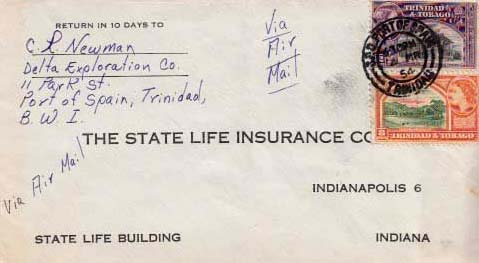 RETURN IN 10 DAYS TO
C. R. Newman
Delta Exploration Co.
11 Park St.
Port of Spain, Trinidad,
B. W. I.
Via
Air
Mail
TRINIDAD
& TOBAGO
PORT OF
54
TRINIDAD
8 TRINIDAD & TOBAGO
THE STATE LIFE INSURANCE CO
Via Air Mail
INDIANAPOLIS 6
STATE LIFE BUILDING
INDIANA